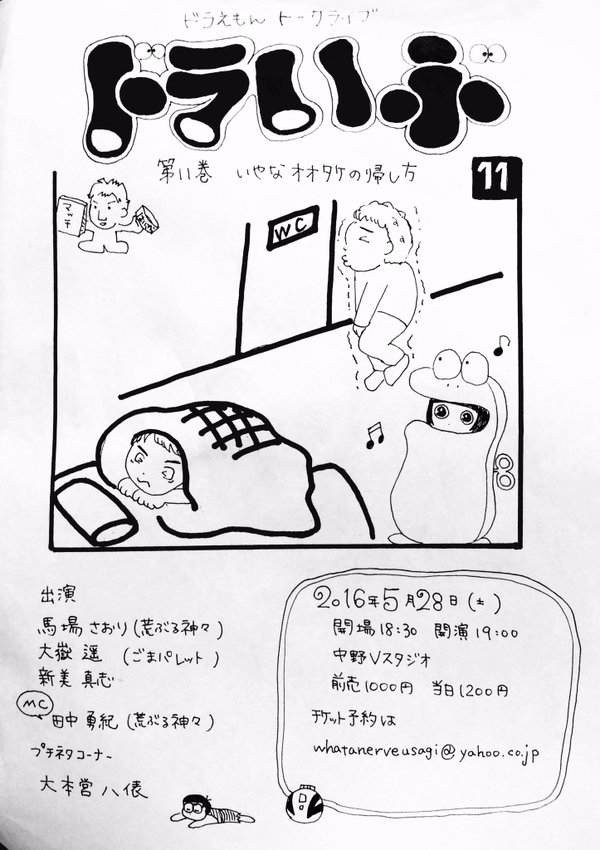 ドラえもん トークライブ
ドラいぶ
第11巻 いやなオオタケの帰し方
11
マッチ
WC
出演
馬場さおり(荒ぶる神々)
大嶽 遥 (ごまパレット)
新美 真志
MC
田中 勇紀(荒ぶる神々)
プチネタコーナー
大本営八俵
2016年5月28日(土)
開場18:30 開演19:00
中野Vスタジオ
前売1000円 当日1200円
チケット予約は
whatanerveusagi@yahoo.co.jp